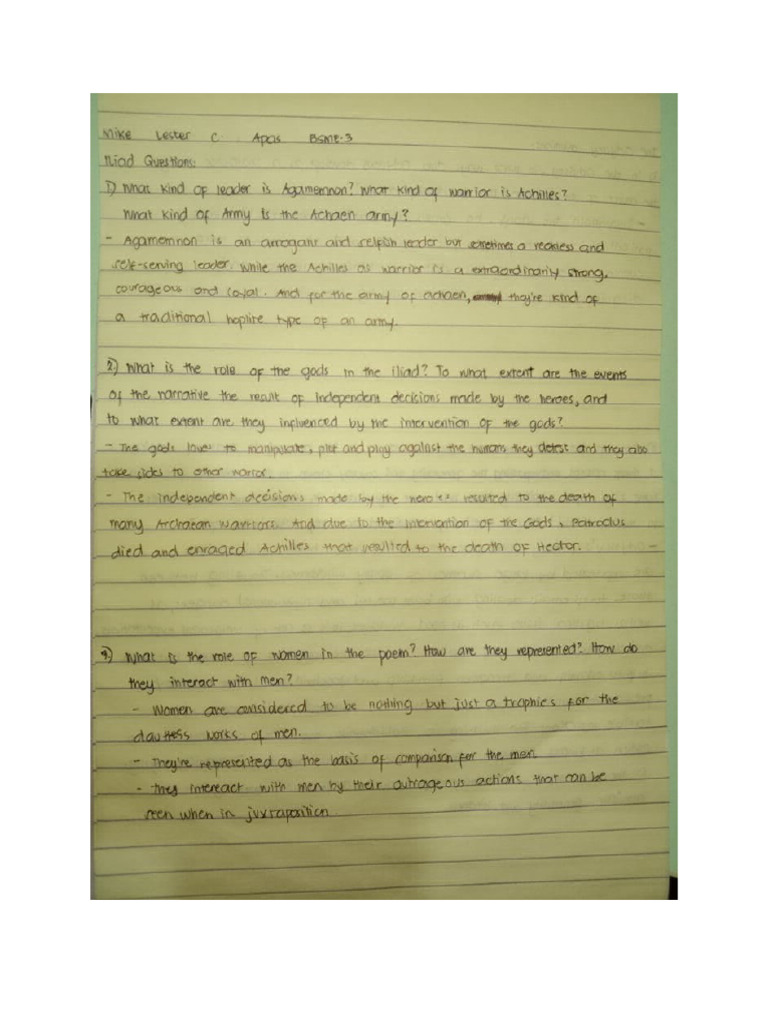 Mike Lester C Apas BSME-3
Iliad Questions:
1) What kind of leader is Agamemnon? What kind of warrior is Achilles?
What kind of Army is the Achaen army?
- Agamemnon is an arrogant and selfish leader but sometimes a reckless and
self-serving leader. While the Achilles as warrior is a extraordinarily strong,
courageous and loyal. And for the army of achaen, they're kind of
a traditional hoplite type of an army.
2) What is the role of the gods in the iliad? To what extent are the events
of the narrative the result of independent decisions made by the heroes, and
to what extent are they influenced by the intervention of the gods?
- The gods loves to manipulate, plot and play against the humans they detest and they also
take sides to other warrior.
- The independent decisions made by the heroes resulted to the death of
many Archaean warriors. And due to the intervention of the Gods, Patroclus
died and enraged Achilles that resulted to the death of Hector.
3) What is the role of women in the poem? How are they represented? How do
they interact with men?
- Women are considered to be nothing but just a trophies for the
works of men.
- They're represented as the basis of comparison for the men.
- They intereact with men by their outrageous actions that can be
seen when in juxtaposition.